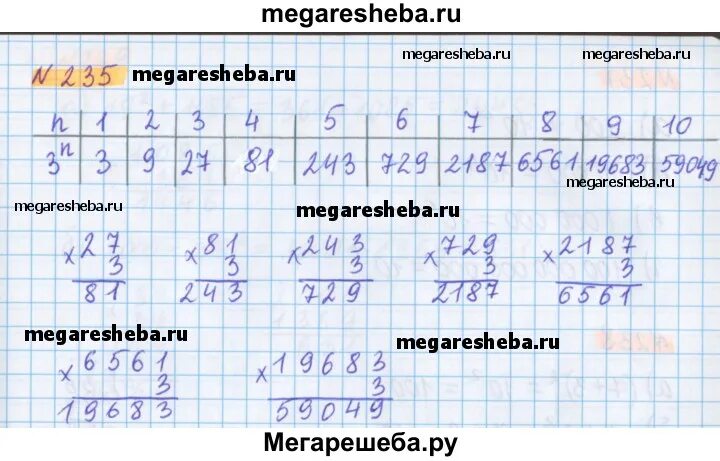 megaresheba.ru
megaresheba.ru
N 235 megaresheba.ru
n 1 2 3 4 5 6 7 8 9 10
3ⁿ 3 9 27 81 243 729 2187 6561 19683 59049
megaresheba.ru
megaresheba.ru
megaresheba.ru
× 27 × 81 × 243 × 729 × 2187
3 3 3 3 3
81 243 729 2187 6561
megaresheba.ru
megaresheba.ru
× 6561 × 19683
3 3
19683 59049
Мегарешеба.ру